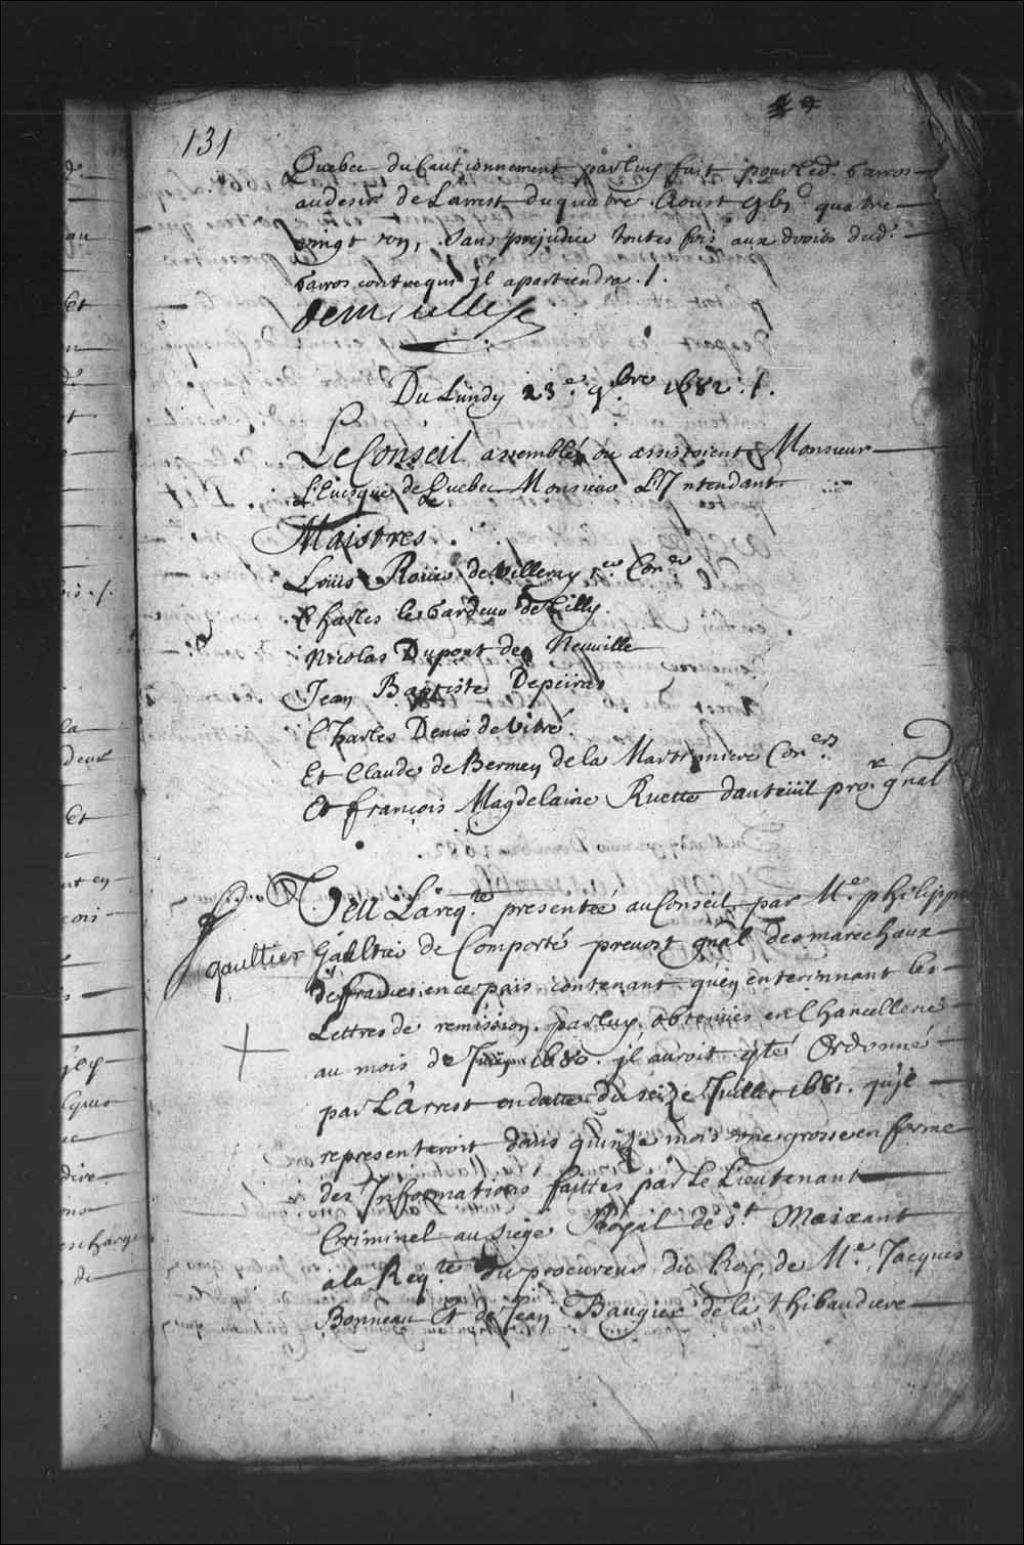 131
Quebec du Cautionnement par luy fait pour led. Carros
au desir de Larrest du quatre Aoust gbc quatre
vingt un, sans prejudice toutes fois aux droits dud.
Carros contre qui il apartiendra ./.
Demeulle
Du Lundy 23e 9bre 1682 ./.
Le Conseil assemblé ou assistoient Monsieur
L'Evesque de Quebec Monsieur L'Intendant
Maistres
Louis Roüer de Villeray per Conr
Charles le Gardeur de Tilly
Nicolas Dupont de Neuville
Jean Baptiste Depeiras
Charles Denis de Vitré
Et Claude de Bermen de la Martiniere Coners
Et françois Magdelaine Ruette dauteüil pror gnal
Veu La reqte presentée au Conseil par Me philippe
gaultier
Gaultier de Comporté prevost gnal des marechaux
de france en ce pais contenant qu'en enterinnant les
Lettres de remission par luy obtenues en Chancellerie
au mois de 1680. il auroit esté Ordonné
par L'Arrest en datte du seize Juillet 1681. qu'il
representeroit dans quinze mois une grosse en forme
des Informations faittes par Le Lieutenant
Criminel au siege Royal de St Maixant
a la Reqte du procureur du Roy, de Me Jacques
Bonneau Et de Jean Baugier de la thibaudiere